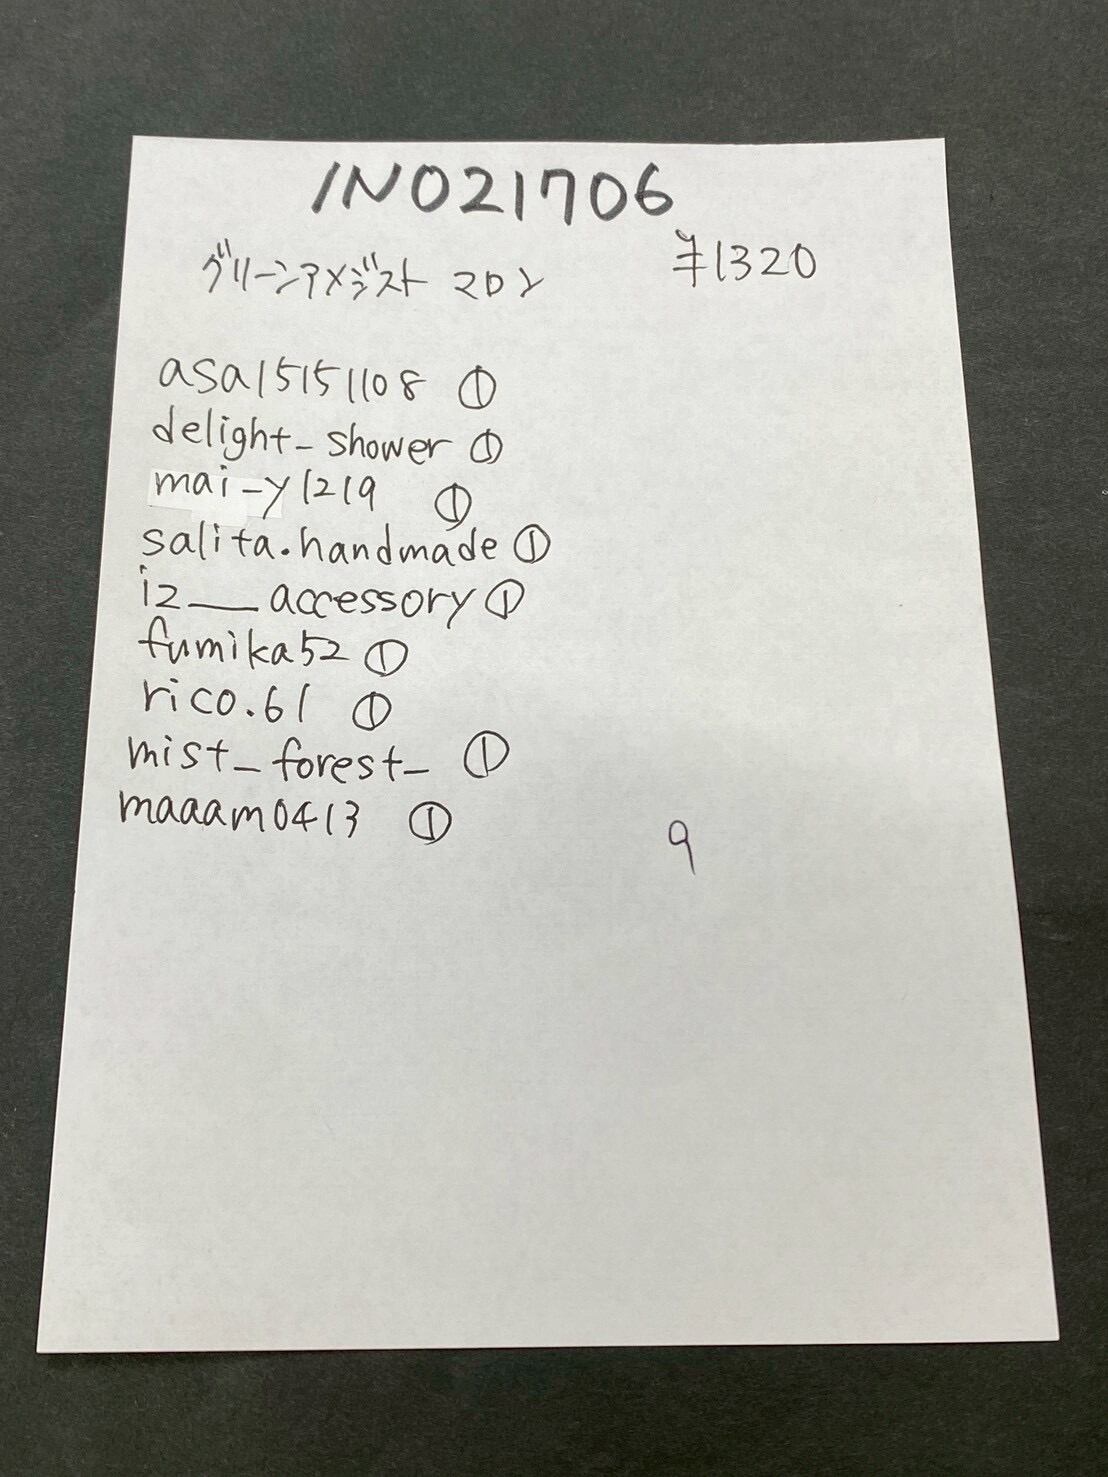 INO21706
グリーンアメジスト マロン
¥1320
asa15151108 ①
delight_shower ①
mai-y1219 ①
salita.handmade ①
iz___accessory ①
fumika52 ①
rico.61 ①
mist_forest_ ①
maaam0413 ①
9